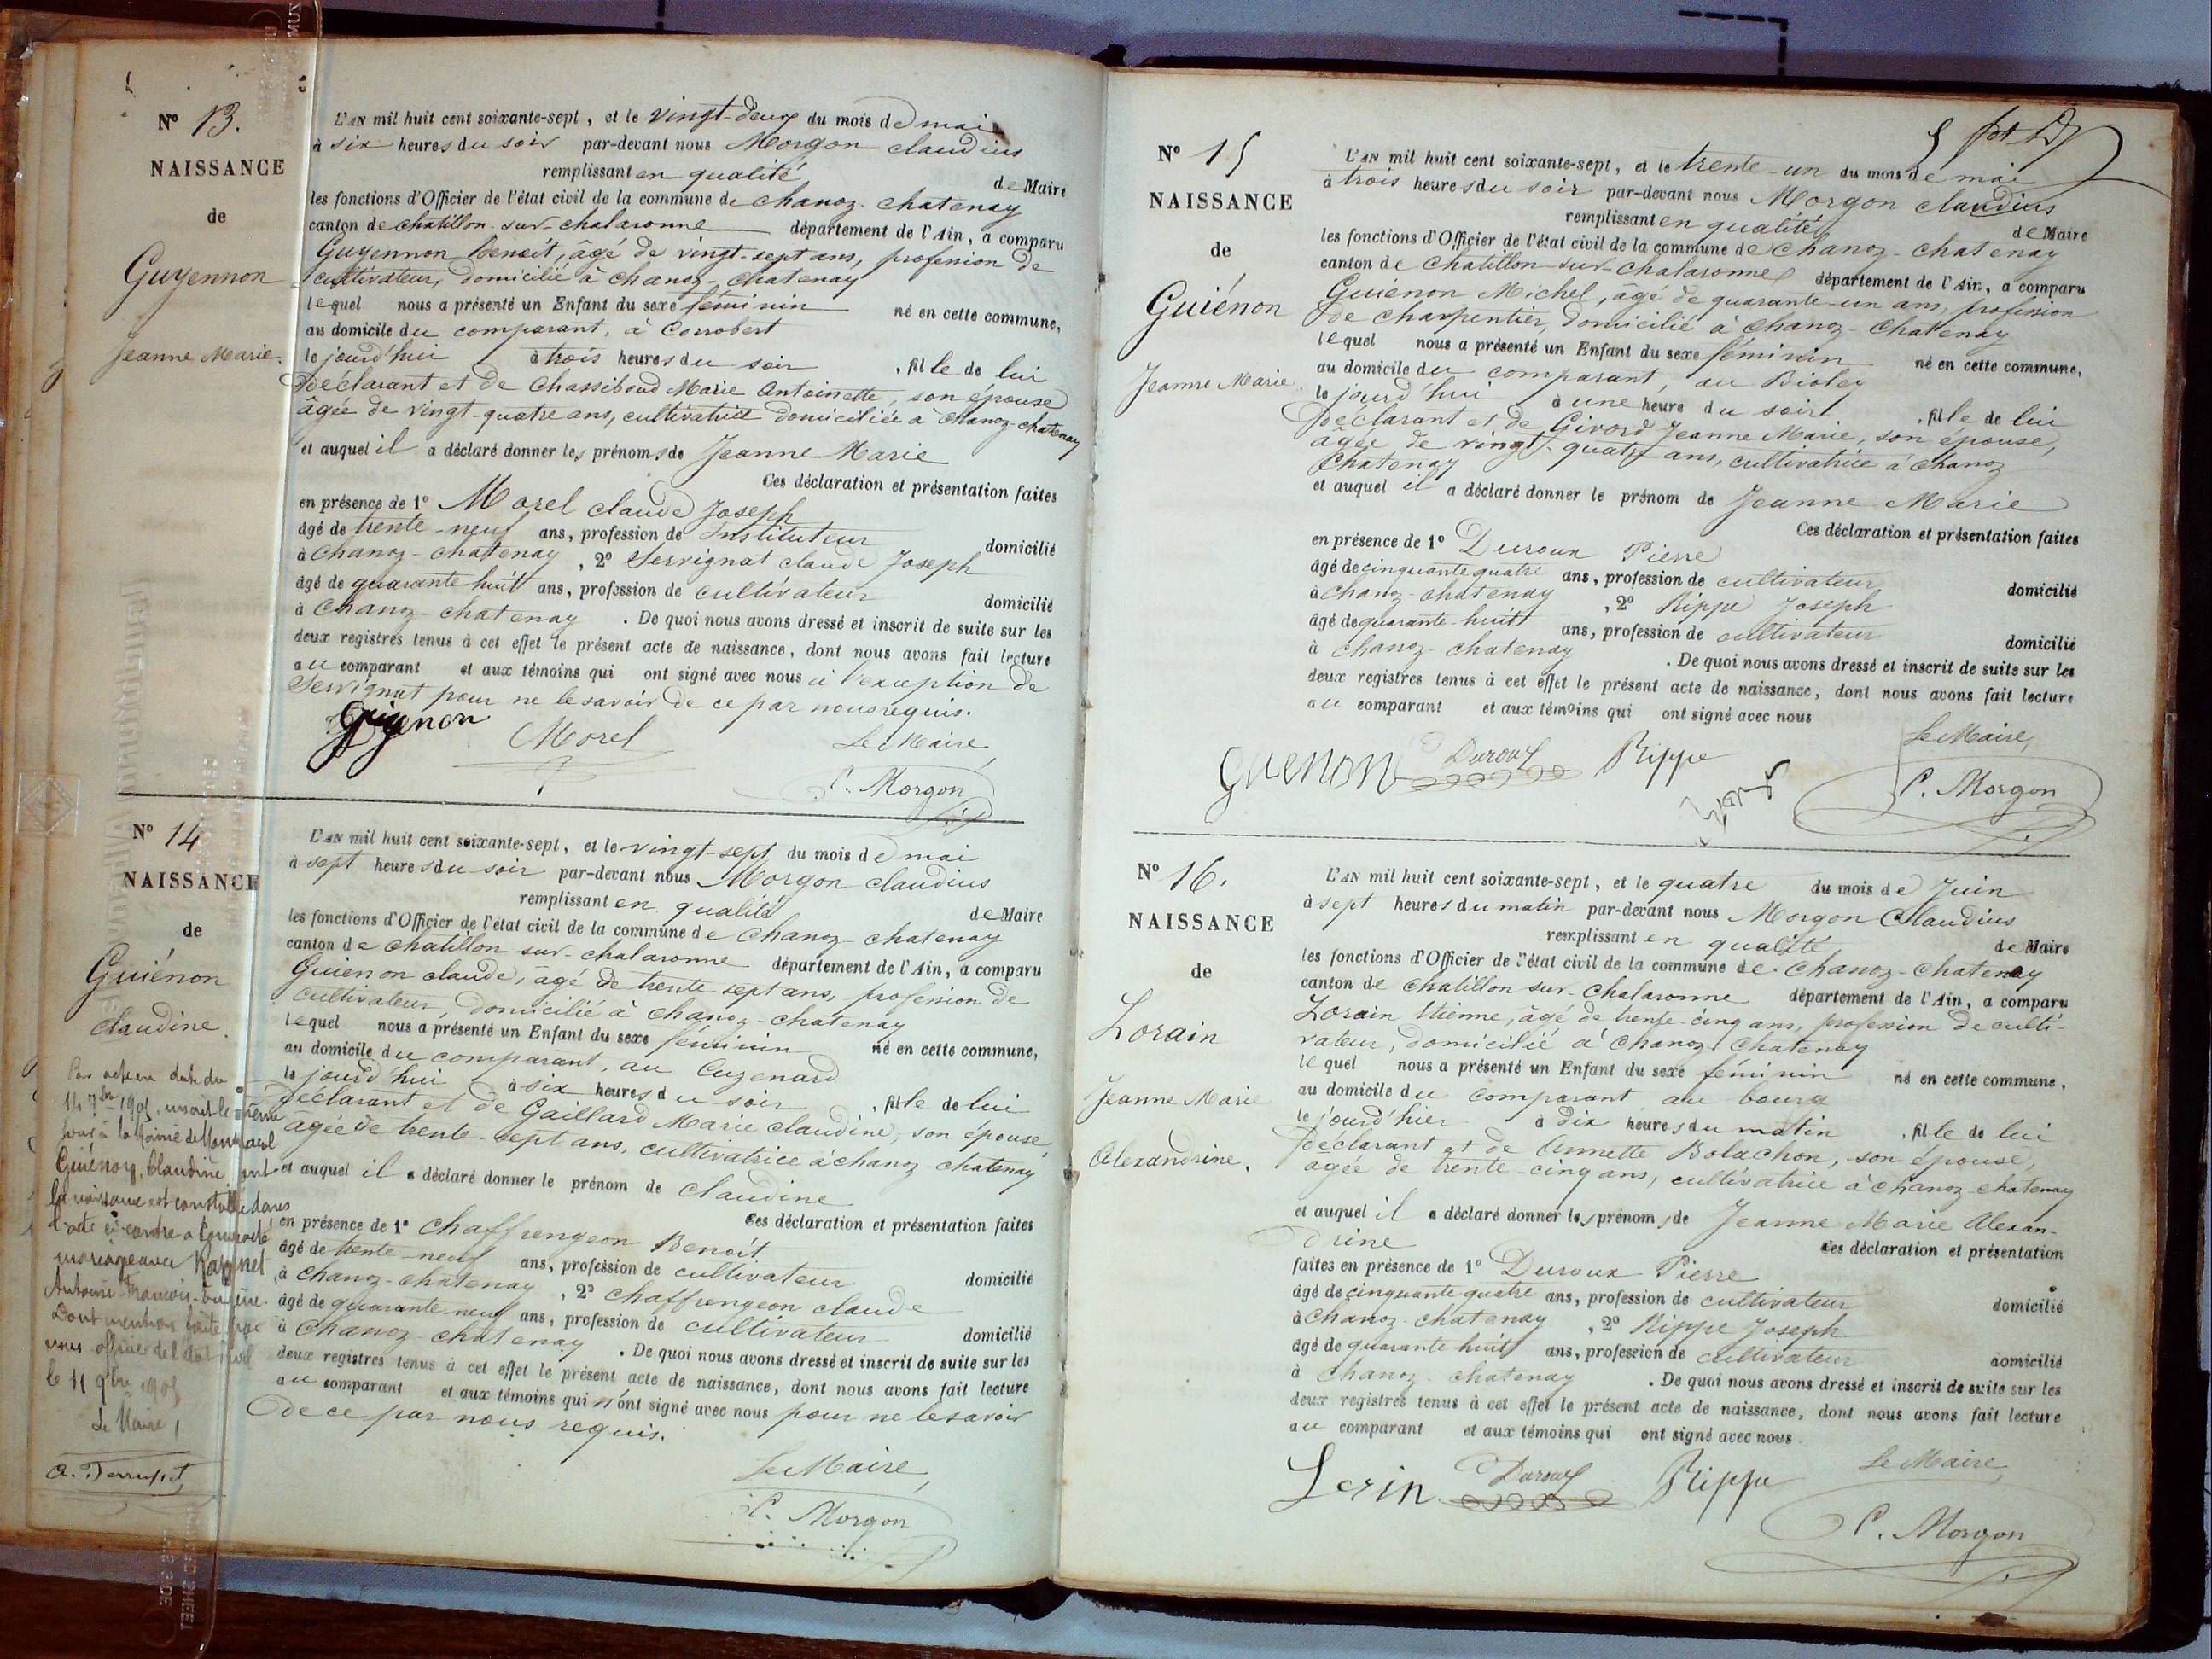 N° 13.
NAISSANCE
de
Guyennon
Jeanne Marie.
L'AN mil huit cent soixante-sept, et le vingt-deux du mois de mai
à six heures du soir par-devant nous Morgon claudius
remplissant en qualité de Maire
les fonctions d'Officier de l'état civil de la commune de chanoz-chatenay
canton de chatillon-sur-chalaronne département de l'Ain, a comparu
Guyennon Benoit, âgé de vingt-sept ans, profession de
cultivateur, domicilié à chanoz-chatenay
lequel nous a présenté un Enfant du sexe féminin né en cette commune,
au domicile du comparant, à Corrobert
le jourd'hui à trois heures du soir, fille de lui
déclarant et de Chassiboud Marie Antoinette, son épouse
âgée de vingt-quatre ans, cultivatrice domiciliée à chanoz-chatenay
et auquel il a déclaré donner les prénoms de Jeanne Marie
Ces déclaration et présentation faites
en présence de 1° Morel claude Joseph
âgé de trente-neuf ans, profession de Instituteur domicilié
à chanoz-chatenay, 2° Servignat claude Joseph
âgé de quarante huit ans, profession de cultivateur domicilié
à chanoz-chatenay. De quoi nous avons dressé et inscrit de suite sur les
deux registres tenus à cet effet le présent acte de naissance, dont nous avons fait lecture
au comparant et aux témoins qui ont signé avec nous à l'exception de
Servignat pour ne le savoir de ce par nous requis.
Guyenon Morel Le Maire,
C. Morgon
N° 14
NAISSANCE
de
Guiénon
claudine.
Par acte en date du
14 7bre 1905, inscrit le même
jour à la Mairie de
Guiénon, Claudine dont
la naissance est constatée dans
l'acte ci-contre a contracté
mariage avec
Antoine François Eugène
Dont mention faite par
nous officier de l'état civil
le 11 9bre 1905
Le Maire,
L'AN mil huit cent soixante-sept, et le vingt-sept du mois de mai
à sept heures du soir par-devant nous Morgon claudius
remplissant en qualité de Maire
les fonctions d'Officier de l'état civil de la commune de chanoz-chatenay
canton de chatillon sur-chalaronne département de l'Ain, a comparu
Guienon claude, âgé de trente sept ans, profession de
cultivateur, domicilié à chanoz-chatenay
lequel nous a présenté un Enfant du sexe féminin né en cette commune,
au domicile du comparant, au Cuzenard
le jourd'hui à six heures du soir, fille de lui
déclarant et de Gaillard Marie claudine, son épouse,
âgée de trente-sept ans, cultivatrice à chanoz chatenay
et auquel il a déclaré donner le prénom de claudine
Ces déclaration et présentation faites
en présence de 1° chaffrengeon Benoit
âgé de trente-neuf ans, profession de cultivateur domicilié
à chanoz-chatenay, 2° chaffrengeon claude
âgé de quarante-neuf ans, profession de cultivateur domicilié
à chanoz chatenay. De quoi nous avons dressé et inscrit de suite sur les
deux registres tenus à cet effet le présent acte de naissance, dont nous avons fait lecture
au comparant et aux témoins qui n'ont signé avec nous pour ne le savoir
de ce par nous requis.
Le Maire,
C. Morgon
N° 15
NAISSANCE
de
Guiénon
Jeanne Marie.
L'AN mil huit cent soixante-sept, et le trente-un du mois de mai
à trois heures du soir par-devant nous Morgon claudius
remplissant en qualité de Maire
les fonctions d'Officier de l'état civil de la commune de chanoz-chatenay
canton de chatillon-sur-chalaronne département de l'Ain, a comparu
Guienon Michel, âgé de quarante-un ans, profession
de charpentier, domicilié à chanoz-chatenay
lequel nous a présenté un Enfant du sexe féminin né en cette commune,
au domicile du comparant, au Bioley
le jourd'hui à une heure du soir, fille de lui
déclarant et de Givord Jeanne Marie, son épouse,
âgée de vingt-quatre ans, cultivatrice à chanoz
chatenay
et auquel il a déclaré donner le prénom de Jeanne Marie
Ces déclaration et présentation faites
en présence de 1° Duroux Pierre
âgé de cinquante quatre ans, profession de cultivateur domicilié
à chanoz-chatenay, 2° Rippe Joseph
âgé de quarante-huit ans, profession de cultivateur domicilié
à chanoz-chatenay. De quoi nous avons dressé et inscrit de suite sur les
deux registres tenus à cet effet le présent acte de naissance, dont nous avons fait lecture
au comparant et aux témoins qui ont signé avec nous
Le Maire,
Guenon Duroux Rippe
C. Morgon
N° 16.
NAISSANCE
de
Lorain
Jeanne Marie
Alexandrine.
L'AN mil huit cent soixante-sept, et le quatre du mois de Juin
à sept heures du matin par-devant nous Morgon Claudius
remplissant en qualité de Maire
les fonctions d'Officier de l'état civil de la commune de chanoz-chatenay
canton de chatillon sur-chalaronne département de l'Ain, a comparu
Lorain Etienne, âgé de trente-cinq ans, profession de culti-
vateur, domicilié à chanoz chatenay
lequel nous a présenté un Enfant du sexe féminin né en cette commune,
au domicile du comparant au bourg
le jourd'hier à dix heures du matin, fille de lui
déclarant et de Annette Bolachon, son épouse,
âgée de trente-cinq ans, cultivatrice à chanoz-chatenay
et auquel il a déclaré donner les prénoms de Jeanne Marie Alexan-
drine Ces déclaration et présentation
faites en présence de 1° Duroux Pierre
âgé de cinquante quatre ans, profession de cultivateur domicilié
à chanoz-chatenay, 2° Rippe Joseph
âgé de quarante huit ans, profession de cultivateur domicilié
à chanoz-chatenay. De quoi nous avons dressé et inscrit de suite sur les
deux registres tenus à cet effet le présent acte de naissance, dont nous avons fait lecture
au comparant et aux témoins qui ont signé avec nous.
Le Maire,
Lorin Duroux Rippe
C. Morgon